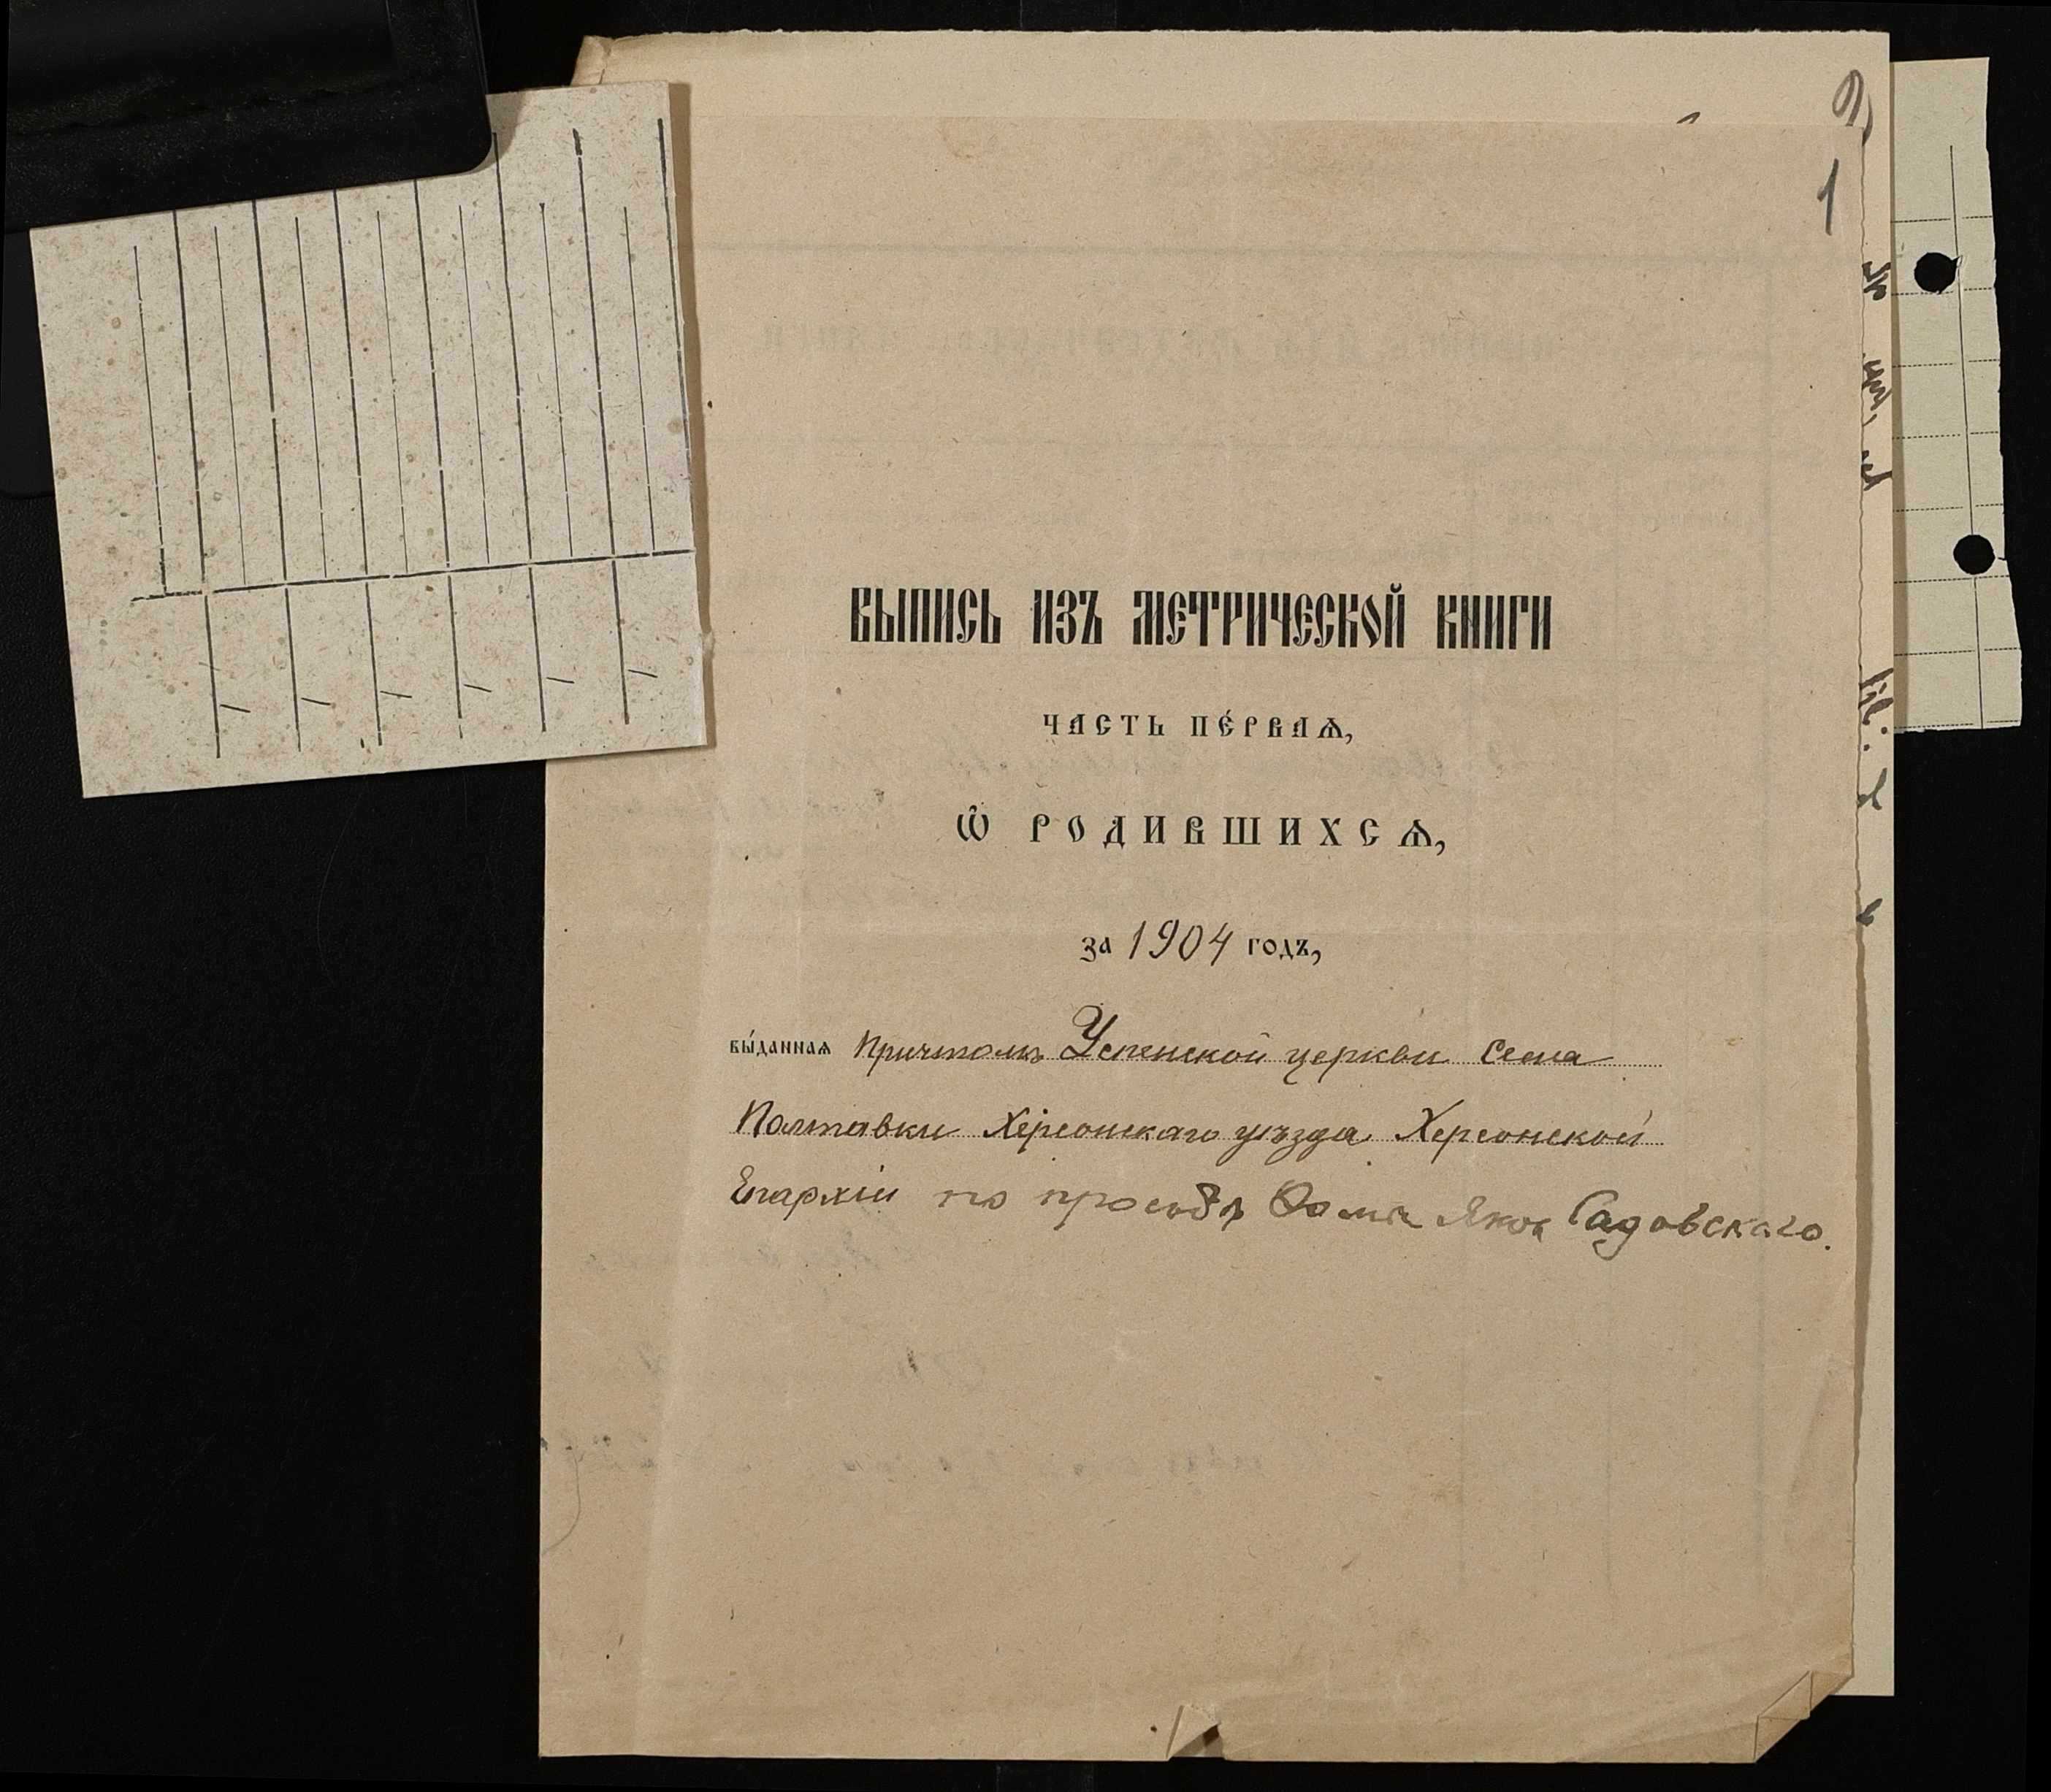 1
ВЫПИСЬ ИЗЪ МЕТРИЧЕСКОЙ КНИГИ
ЧАСТЬ ПЕ́РВАѦ,
Ѽ РОДИВШИХСѦ,
за 1904 годъ,
вы́даннаѧ Причтомъ Успенской церкви села
Полтавки Херсонскаго уѣзда Херсонской
Епархіи по просьбѣ Фомы Яков Садовскаго.